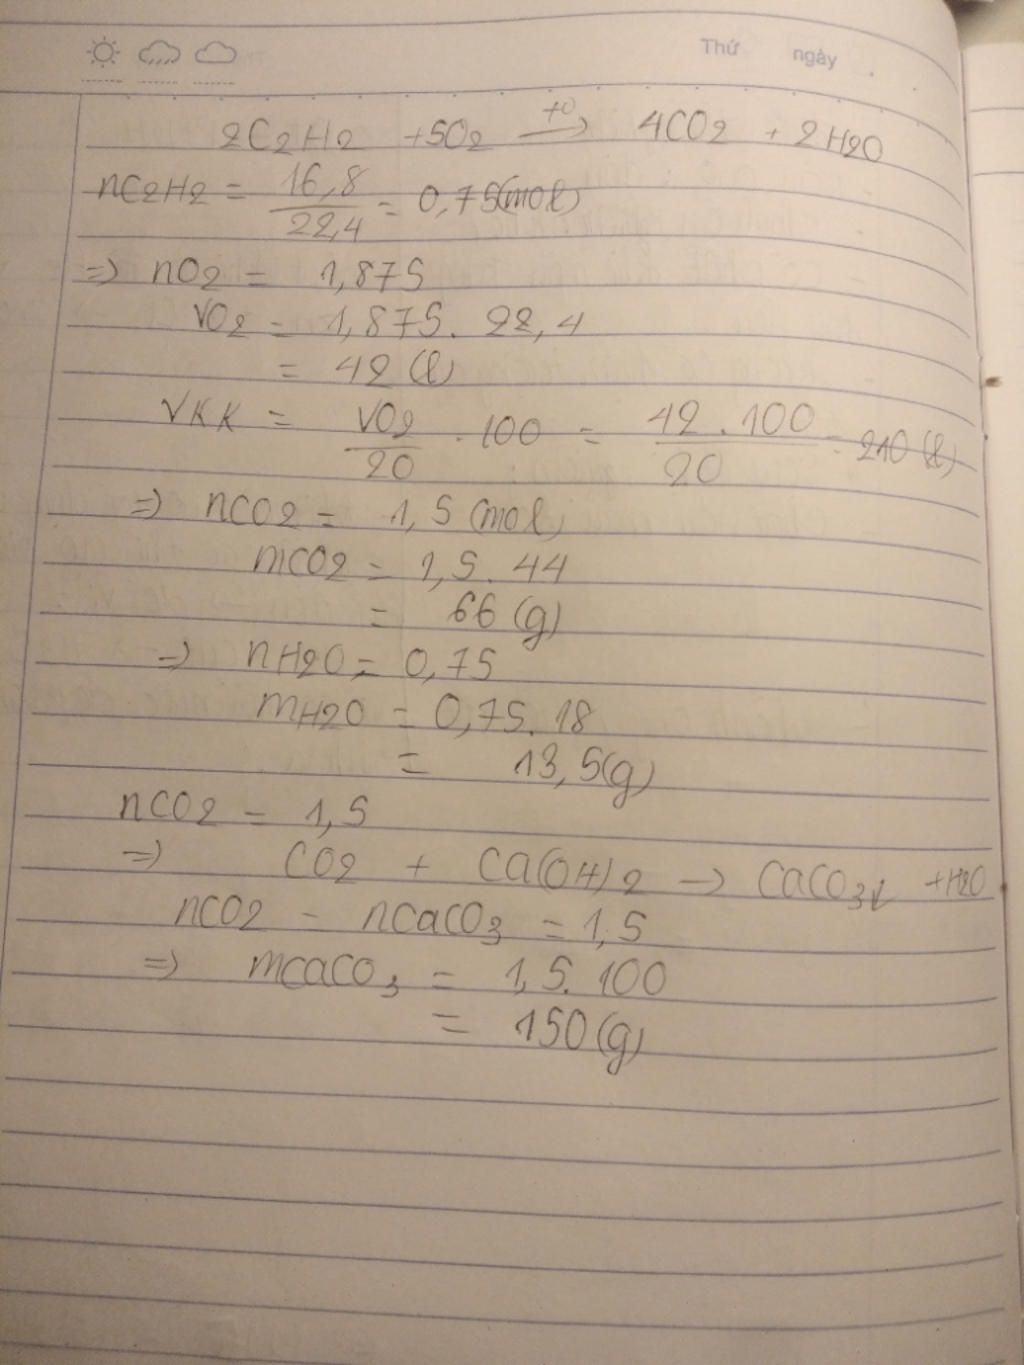 Thứ ngày
2C2H2 + 5O2 →(t0) 4CO2 + 2H2O
nC2H2 = 16,8/22,4 = 0,75(mol)
=> nO2 = 1,875
VO2 = 1,875. 22,4
= 42 (l)
VKK = VO2/20 . 100 = 42 . 100/20 = 210 (l)
=> nCO2 = 1,5 (mol)
mCO2 = 1,5. 44
= 66 (g)
=> nH2O = 0,75
mH2O = 0,75. 18
= 13,5(g)
nCO2 = 1,5
=> CO2 + Ca(OH)2 -> CaCO3↓ + H2O
nCO2 - nCaCO3 = 1,5
=> mCaCO3 = 1,5. 100
= 150 (g)